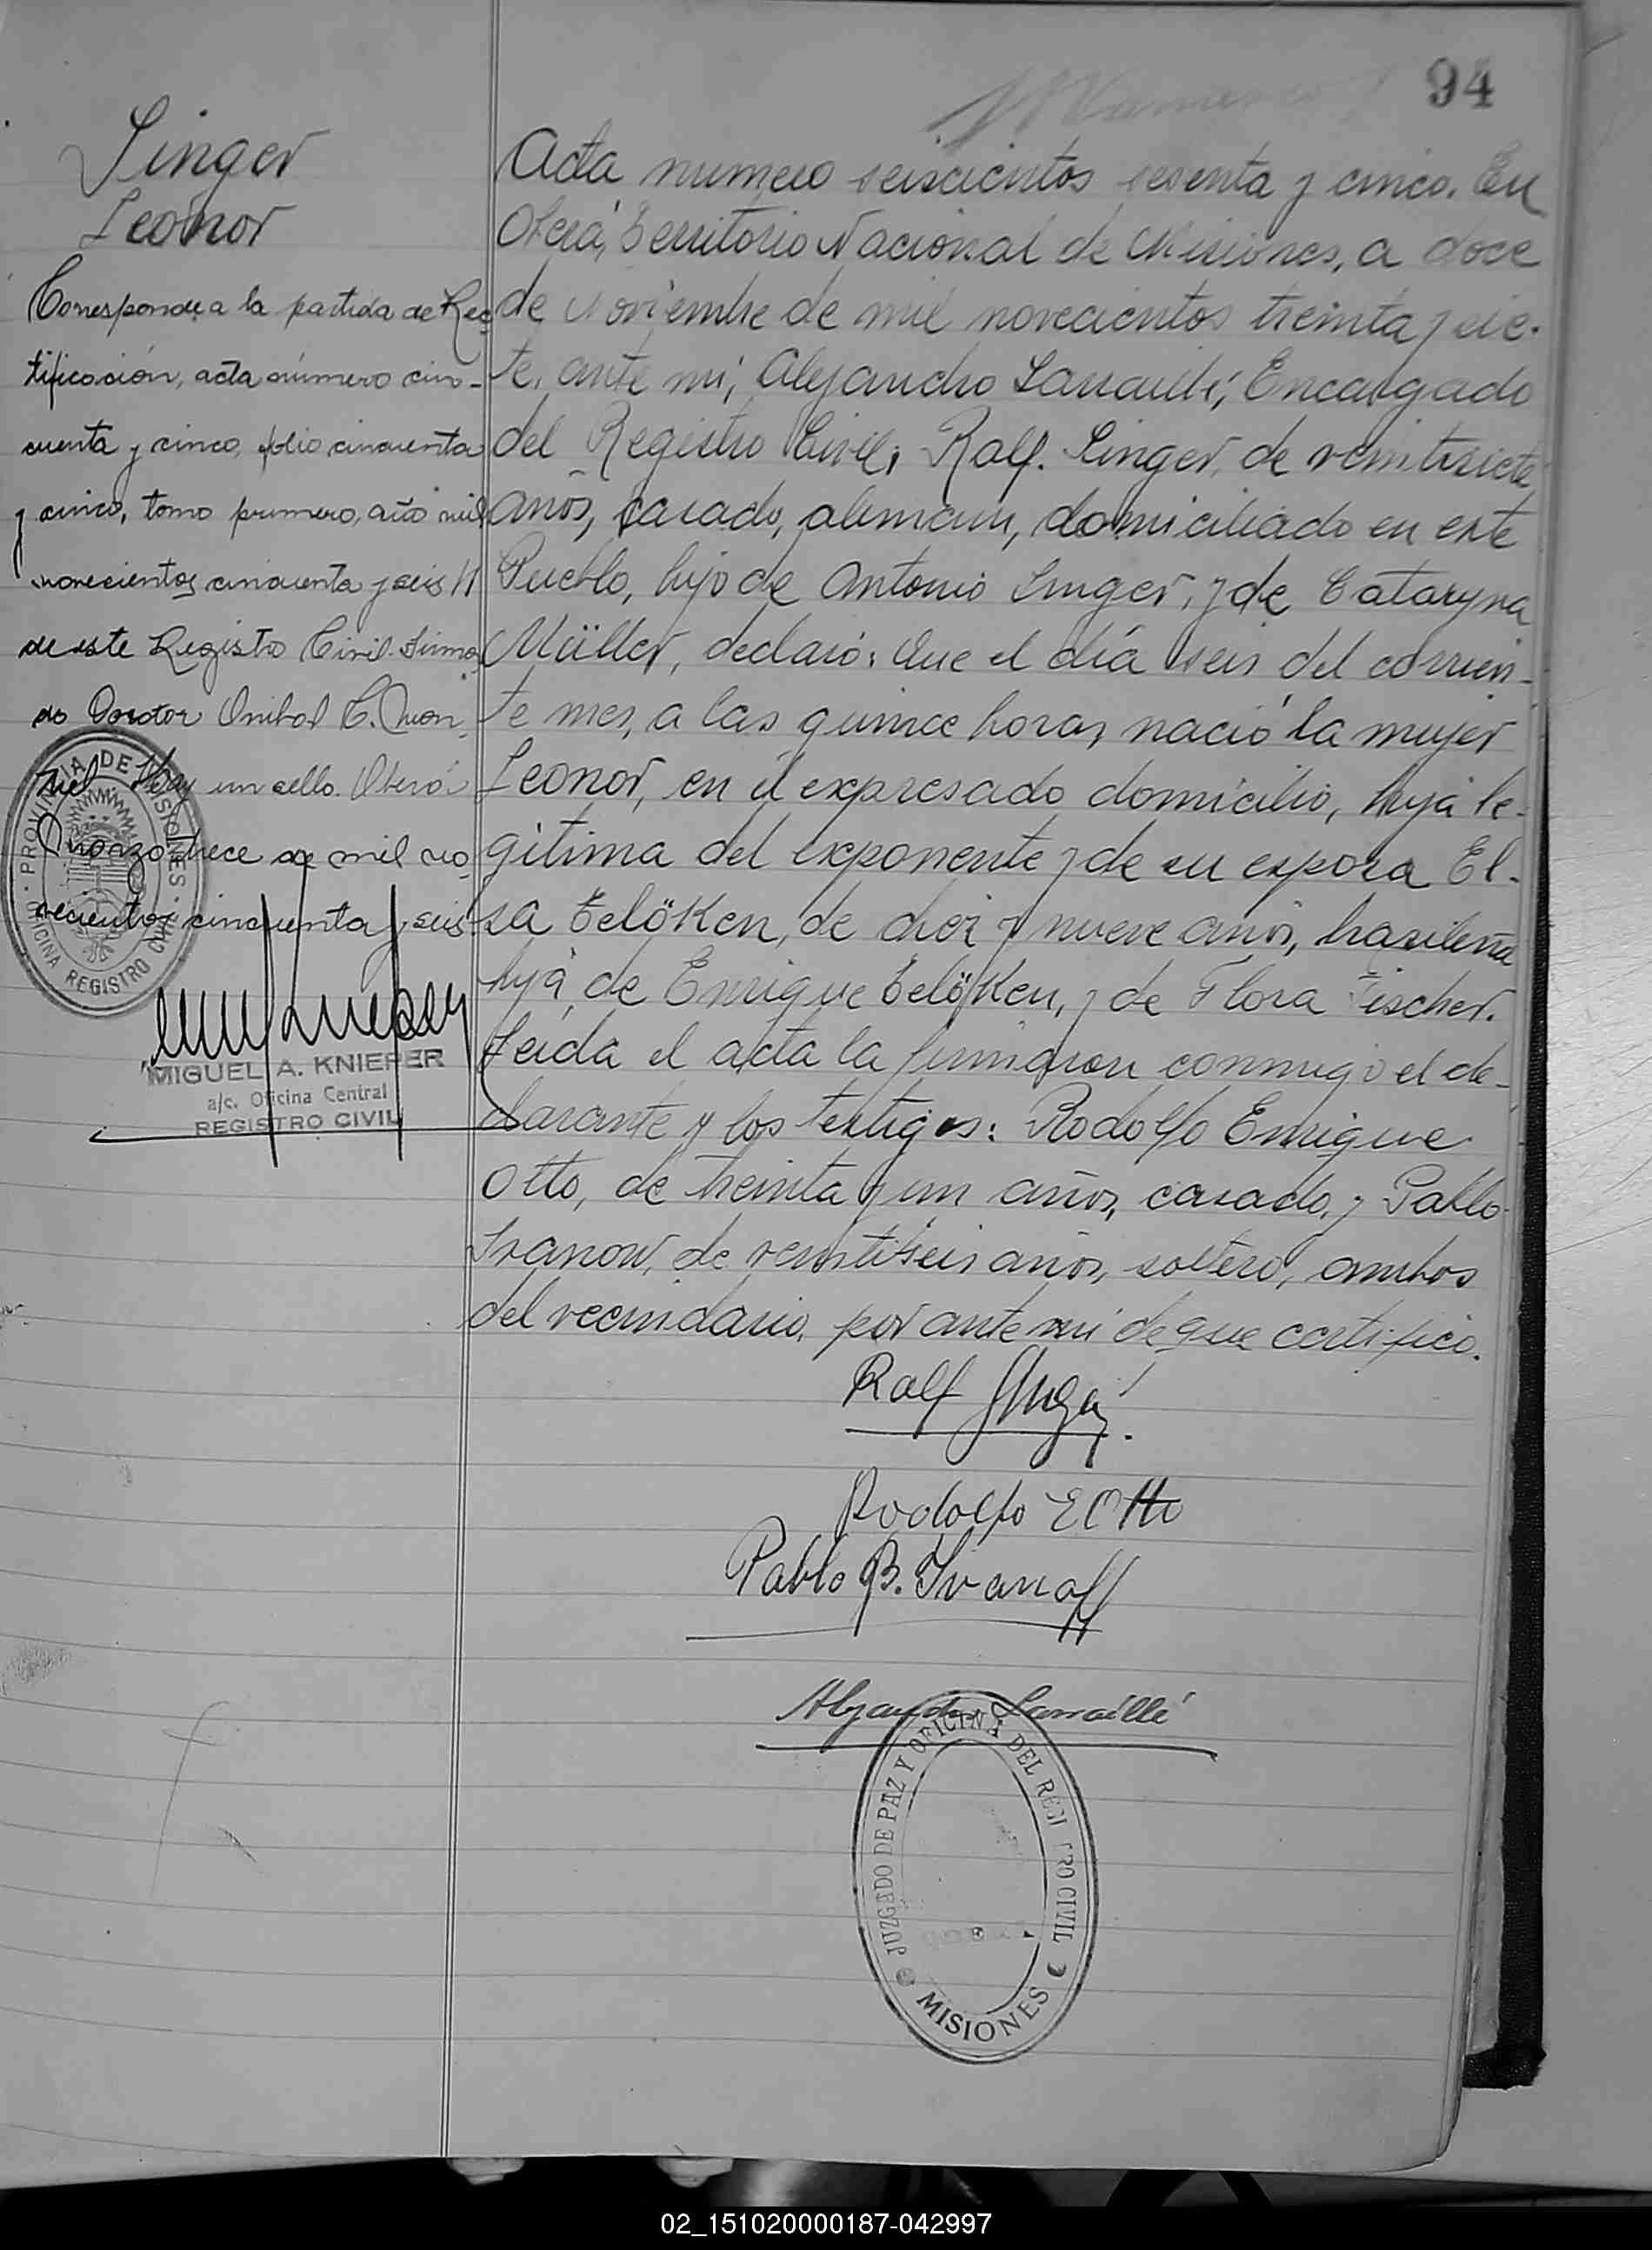 94
Singer
Leonor
Corresponde a la partida de Rec
tificación, acta número cin-
cuenta y cinco, folio cincuenta
y cinco, tomo primero, año mil
novecientos cincuenta y seis
de este Registro Civil. Firma
do Doctor C.
Hay un sello. Oberá
trece de mil no
vecientos cincuenta y seis.
PROVINCIA DE MISIONES
OFICINA REGISTRO CIVIL
MIGUEL A. KNIEPER
a/c. Oficina Central
REGISTRO CIVIL
Acta numero seiscientos sesenta y cinco. En
Oberá, Territorio Nacional de Misiones, a doce
de Noviembre de mil novecientos treinta y sie-
te, ante mí, Alejandro Sarraillé, Encargado
del Registro Civil, Ralf. Singer, de veintisiete
años, casado, aleman, domiciliado en este
Pueblo, hijo de Antonio Singer, y de Cataryna
Müller, declaró: Que el día seis del corrien-
te mes, a las quince horas, nació la mujer
Leonor, en el expresado domicilio, hija le-
gitima del exponente y de su esposa El-
sa Telöken, de diez y nueve años, brasileña
hija de Enrique Telöken, y de Flora Fischer.
Leida el acta la firmaron conmigo el de-
clarante y los testigos: Rodolfo Enrique
Otto, de treinta y un años, casado, y Pablo
Ivanow, de veintiseis años, soltero, ambos
del vecindario, por ante mi de que certifico.
Ralf Singer
Rodolfo E Otto
Pablo B. Ivanoff
Alejandro Sarraillé
JUZGADO DE PAZ Y OFICINA DEL REGISTRO CIVIL
MISIONES
02_151020000187-042997